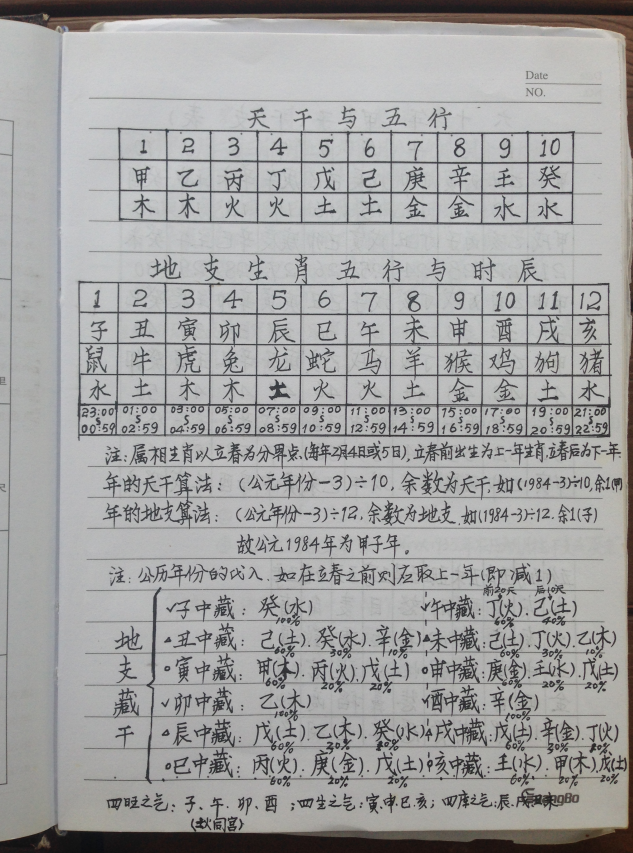 Date
NO.
天干与五行
1 2 3 4 5 6 7 8 9 10
甲 乙 丙 丁 戊 己 庚 辛 壬 癸
木 木 火 火 土 土 金 金 水 水
地支生肖五行与时辰
1 2 3 4 5 6 7 8 9 10 11 12
子 丑 寅 卯 辰 巳 午 未 申 酉 戌 亥
鼠 牛 虎 兔 龙 蛇 马 羊 猴 鸡 狗 猪
水 土 木 木 土 火 火 土 金 金 土 水
23:00 01:00 03:00 05:00 07:00 09:00 11:00 13:00 15:00 17:00 19:00 21:00
00:59 02:59 04:59 06:59 08:59 10:59 12:59 14:59 16:59 18:59 20:59 22:59
注:属相生肖以立春为分界点,(每年2月4日或5日),立春前出生为上一年生肖,立春后为下一年.
年的天干算法:(公元年份-3)÷10,余数为天干,如(1984-3)÷10,余1(甲)
年的地支算法:(公元年份-3)÷12,余数为地支,如(1984-3)÷12.余1(子)
故公元1984年为甲子年。
注:公历年份的代入,如在立春之前则应取上一年(即减1)
前20天 后10天
地支藏干
✓子中藏:癸(水) ✓午中藏:丁(火).己(土)
100% 60% 40%
▵丑中藏:己(土).癸(水).辛(金) ▵未中藏:己(土).丁(火).乙(木)
60% 30% 10% 60% 30% 10%
o寅中藏:甲(木).丙(火).戊(土) o申中藏:庚(金).壬(水).戊(土)
60% 20% 20% 60% 20% 20%
✓卯中藏:乙(木) ✓酉中藏:辛(金)
100% 100%
▵辰中藏:戊(土).乙(木).癸(水) ▵戌中藏:戊(土).辛(金).丁(火)
60% 30% 60% 30%
o巳中藏:丙(火).庚(金).戊(土) o亥中藏:壬(水).甲(木).戊(土)
60% 20% 20% 60% 20% 20%
四旺之气:子、午.卯.酉;四生之气:寅.申.巳.亥;四库之气:辰.戌.丑.未
同宫)